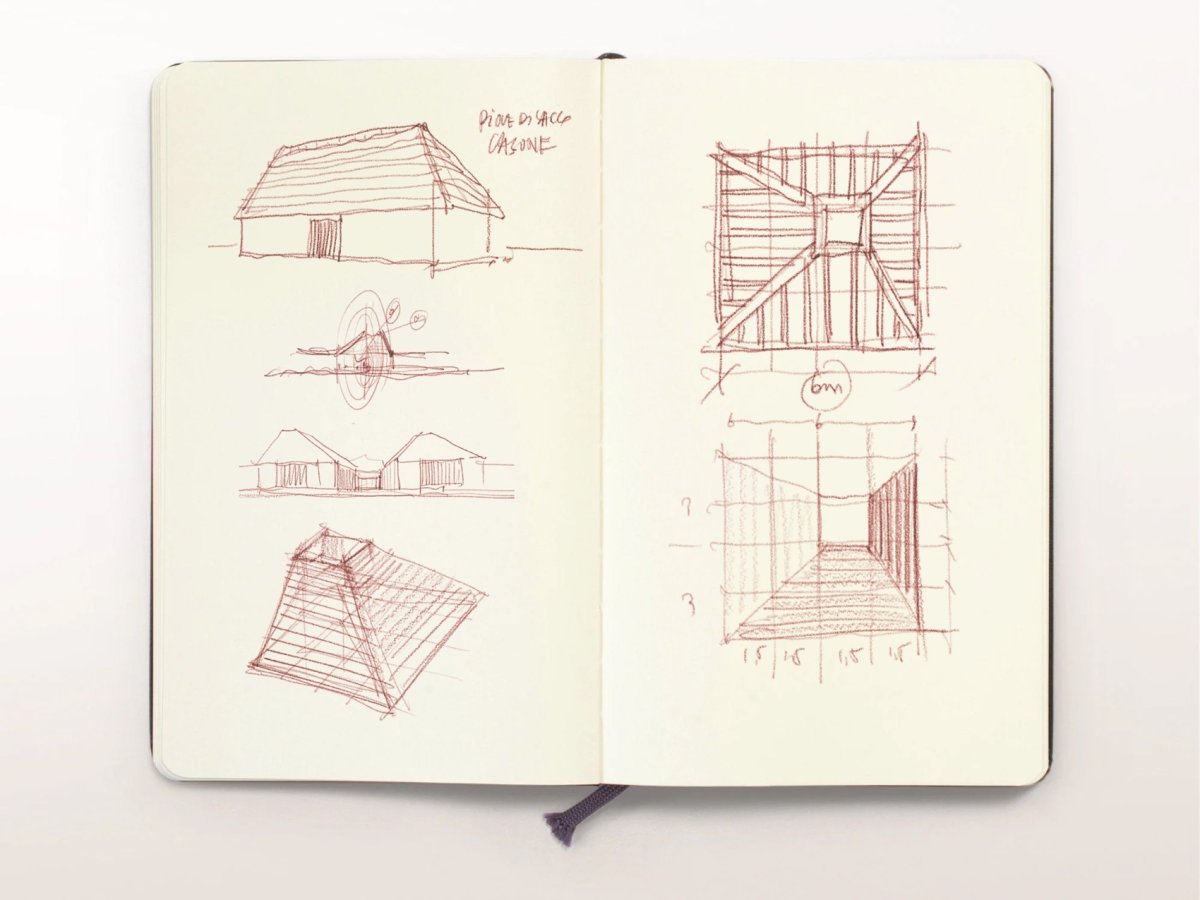 PiOVE Di SACCO
CASONE
6m
3
3
1,5 1,5 1,5 1,5